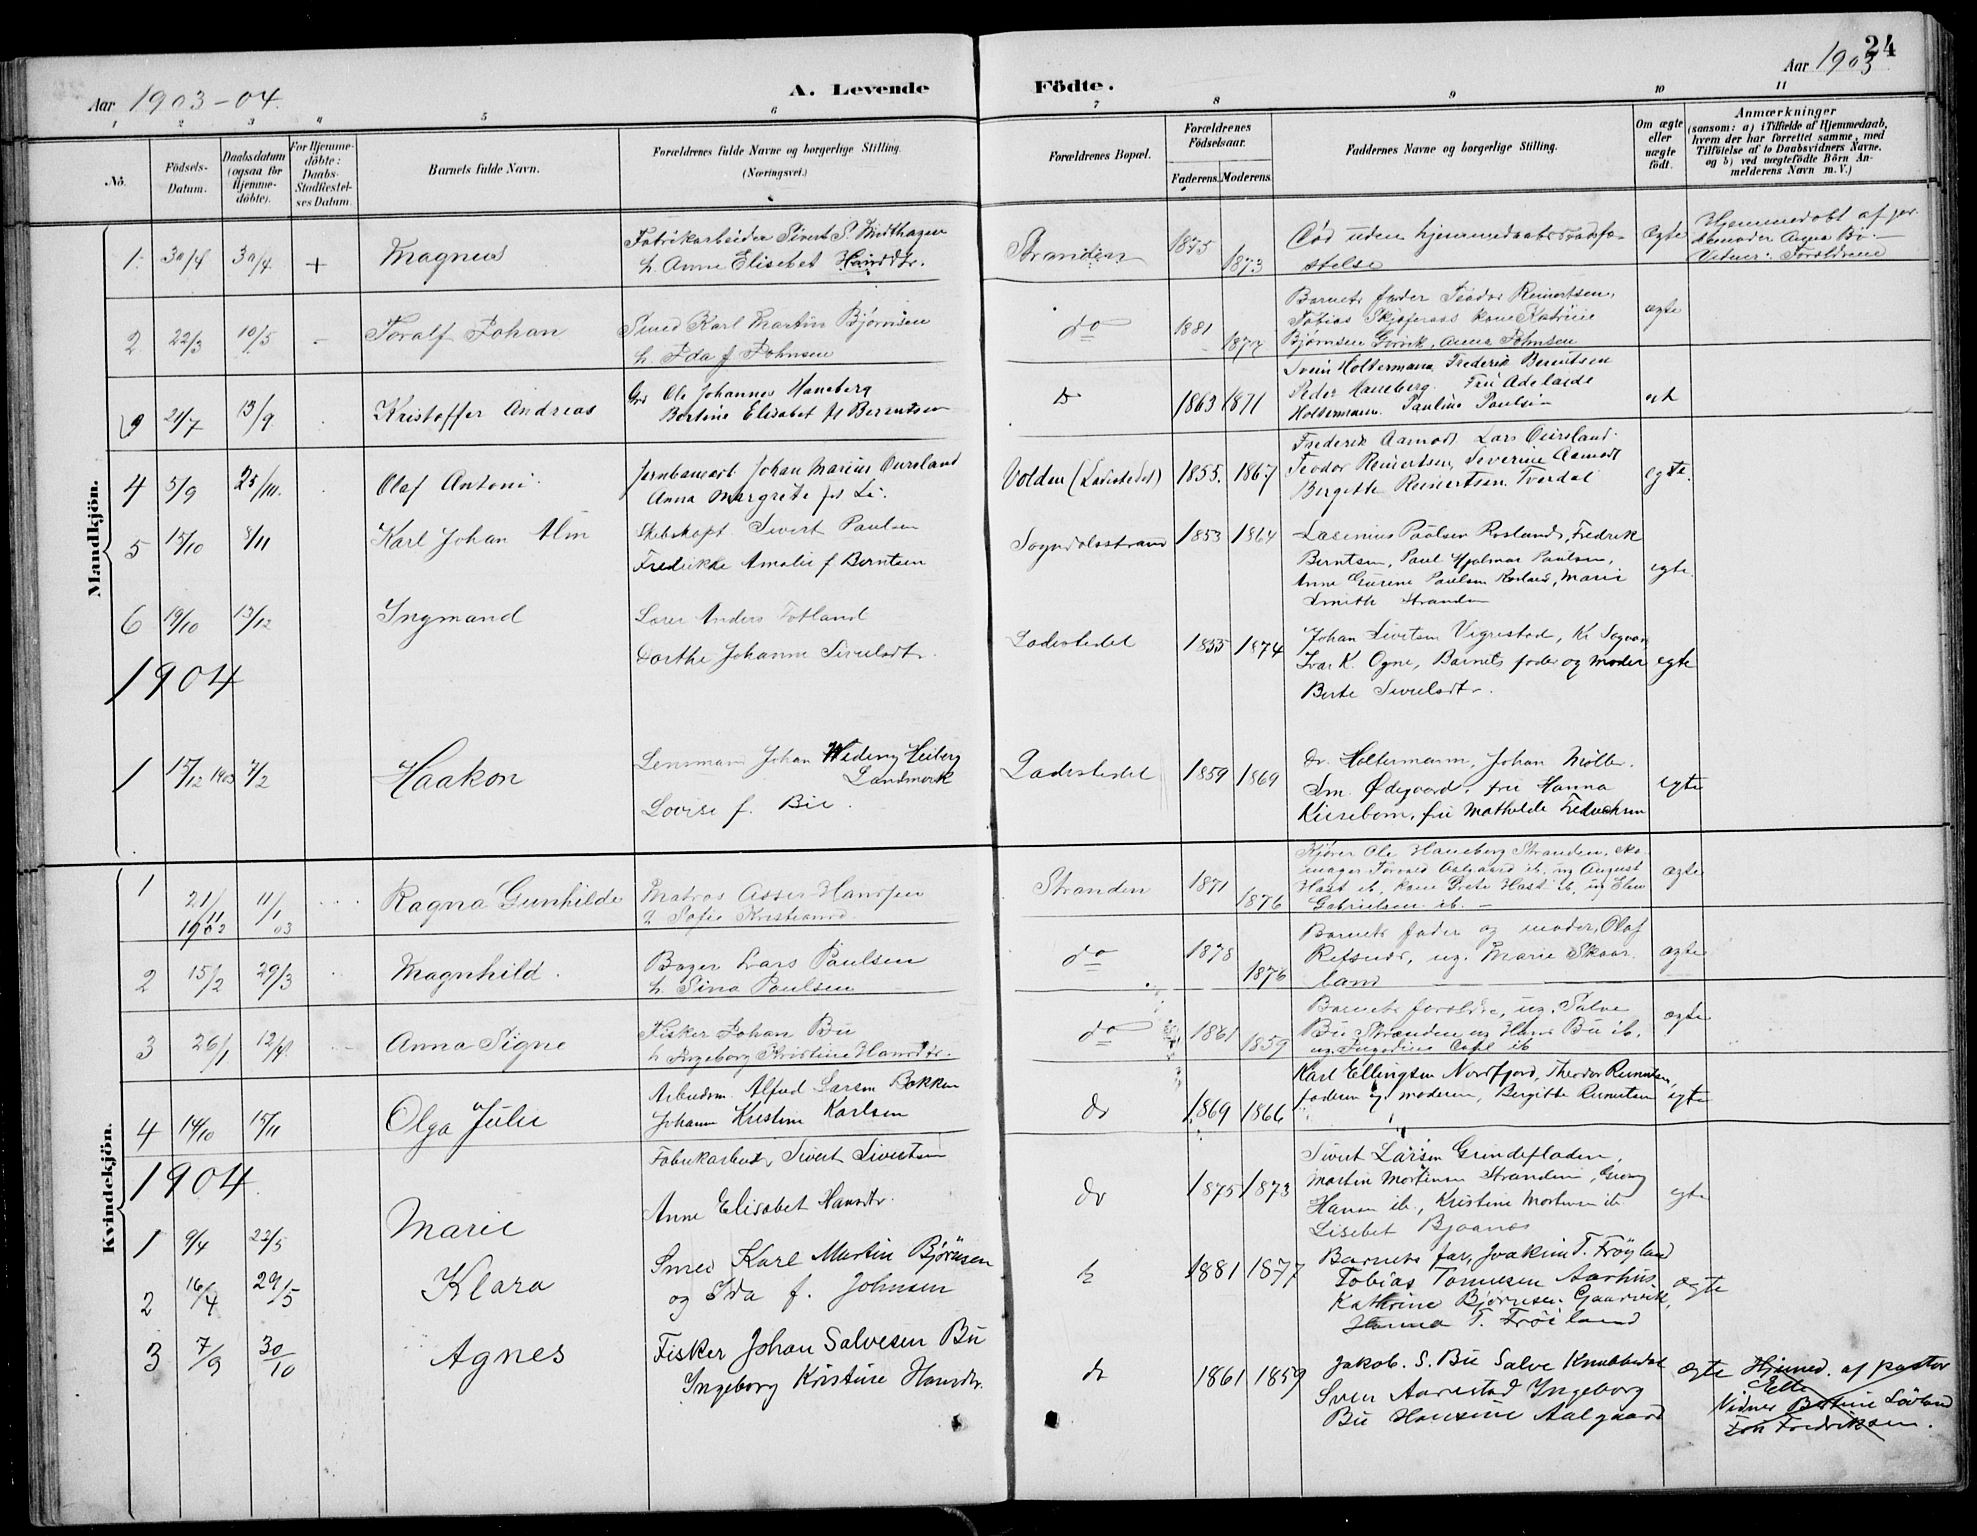 24
Aar 1903-04.
A. Levende Födte.
Aar 1903
1 2 3 4 5 6 7 8 9 10 11
No.
Födsels-Datum.
Daabsdatum (ogsaa for Hjemmedöbte).
For Hjemmedöbte: Daabs-Stadfæstelses Datum.
Barnets fulde Navn.
Forældrenes fulde Navne og borgerlige Stilling. (Næringsvei.)
Forældrenes Bopæl.
Forældrenes Födselsaar.
Faderens. Moderens.
Faddernes Navne og borgerlige Stilling.
Om ægte eller uægte födt.
Anmærkninger
(saasom: a) i Tilfælde af Hjemmedaab,
hvem der har forrettet samme, med
Tilföielse af to Daabsvidners Navne,
og b) ved uægtefödte Börn An-
melderens Navn m. V.)
Mandkjön.
1. 30/4 30/4 + Magnus
Fabrikarbeider Sivert S. Midthagen
h. Anne Elisebet Hansdtr.
Stranden 1875 1873
Död uden hjemmedaabsstadfæ-
stelse
Ægte
Hjemmedöbt af jor-
demoder Anna Bö-
Vidner: Forældrene
2 22/3 10/5 - Toralf Johan
Smed Karl Martin Bjørnsen
h. Ida f. Johnsen
do 1881 1877
Barnets fader Teodor Reinertsen,
Tobias kone Katrine
Bjørnsen Gørvik, Anna Johnsen
ægte
3 21/7 13/9 Kristoffer Andreas
Ole Johannes Haneberg
Bertine Elisabet f. Berentsen
Do 1863 1871
Holtermann Frederik Berentsen
Peder Haneberg. Fru Adelaide
Holtermann. Pauline Paulsen
egt
4 5/9 25/10. Olaf Antoni
Jernbanearb Johan Marius Oursland
Anna Margrete f. Li.
Volden (Ladestedet) 1855. 1867
Frederik Aamodt Lars Oursland.
Teodor Reinertsen, Severine Aamodt
Bergitte Reinertsen. Tverdal
egte.
5 15/10 8/11 Karl Johan Alm
Skibskapt. Sivert Paulsen
Fredrikke Amalie f Berntsen
Sogndalsstrand 1853 1864
Lasenius Paulsen Rosland, Fredrik
Berntsen, Paul Hjalmar Paulsen,
Anne Gurine Paulsen Rosland, Marie
Smith Stranden
egte.
6 19/10 13/12 Ingmand
Lærer Anders Fotland
Dorthe Johanne Sivelsdtr.
Ladestedet 1855 1874
Johan Sivertsen Vigrestad,
Ivar K. Ogne, Barnets fader og moder
Berte Sivelsdtr.
egte
1904
1 15/12 1903 7/2 Haakon
Lensmand Johan Wideny Heiberg
Landmark
Lovise f. Bie.
Ladestedet 1859 1869
Dr. Holtermann, Johan Møller.
Sm. Ødegaard. fru Hanna
Kiesebom, fru Mathilde Fredriksen
egte
Kvindekjön.
1 21/11 1902 11/1 03 Ragna Gunhilde
Matros Asser Hansen
h Sofie
Stranden 1871 1876
Kjører Ole Haneberg Stranden, sko-
mager Torvald Aalgaard ib. ug August
Hast ib, kone Grete Hast ib, ug Elen
Gabrielsen ib. -
ægte
2 15/2 29/3 Magnhild.
Bager Lars Paulsen
h. Sina Paulsen
do 1878 1876
Barnets fader og moder, Olaf
Refsnes, ug. Marie Skaar
land
ægte
3 26/1 12/4. Anna Signe
Fisker Johan Bu
h Ingeborg Kristine Hansdtr.
do 1861 1859
Barnets foreldre, ug. Salve
Bu. Stranden ug Hans Bu ib,
ug. ib
ægte
4 14/10 15/11 Olga Julie
Arbeidsm. Alfred Larsen Bakken
Johanne Kristine Karlsen
do 1869 1866
Karl Ellingsen Nordfjord, Theodor Reinertsen,
faderen og moderen, Bergitte Reinertsen
egte
1904.
1 9/4 22/5 Marie
Fabrikarbeid. Sivert Sivertsen
Anne Elisabet Hansdtr.
do 1875 1873
Sivert Larsen Grindefladen,
Martin Mortensen Stranden, Georg
Hansen ib., Kristine Mortensen ib
Lisebet Bjaanes
egte
2 16/4 29/5 Klara
Smed Karl Martin Bjørnsen
og Ida f. Johnsen
do 1881 1877
Barnets far, Joakim T. Frøyland
Tobias Tønnesen Aarhus.
Kathrine Bjørnsen Gaarvik,
Hanna T. Frøiland
ægte
3 7/9 30/10 Agnes
Fisker Johan Salvesen Bu
Ingeborg Kristine Hansdtr.
do 1861 1859
Jakob. S. Bu Salve Knubbedal
Sven Aarestad Ingeborg
Bu Hansine Aalgaard
ægte
Hjemmed. af pastor
Vidner Bertine Løvland
Fredriksen.